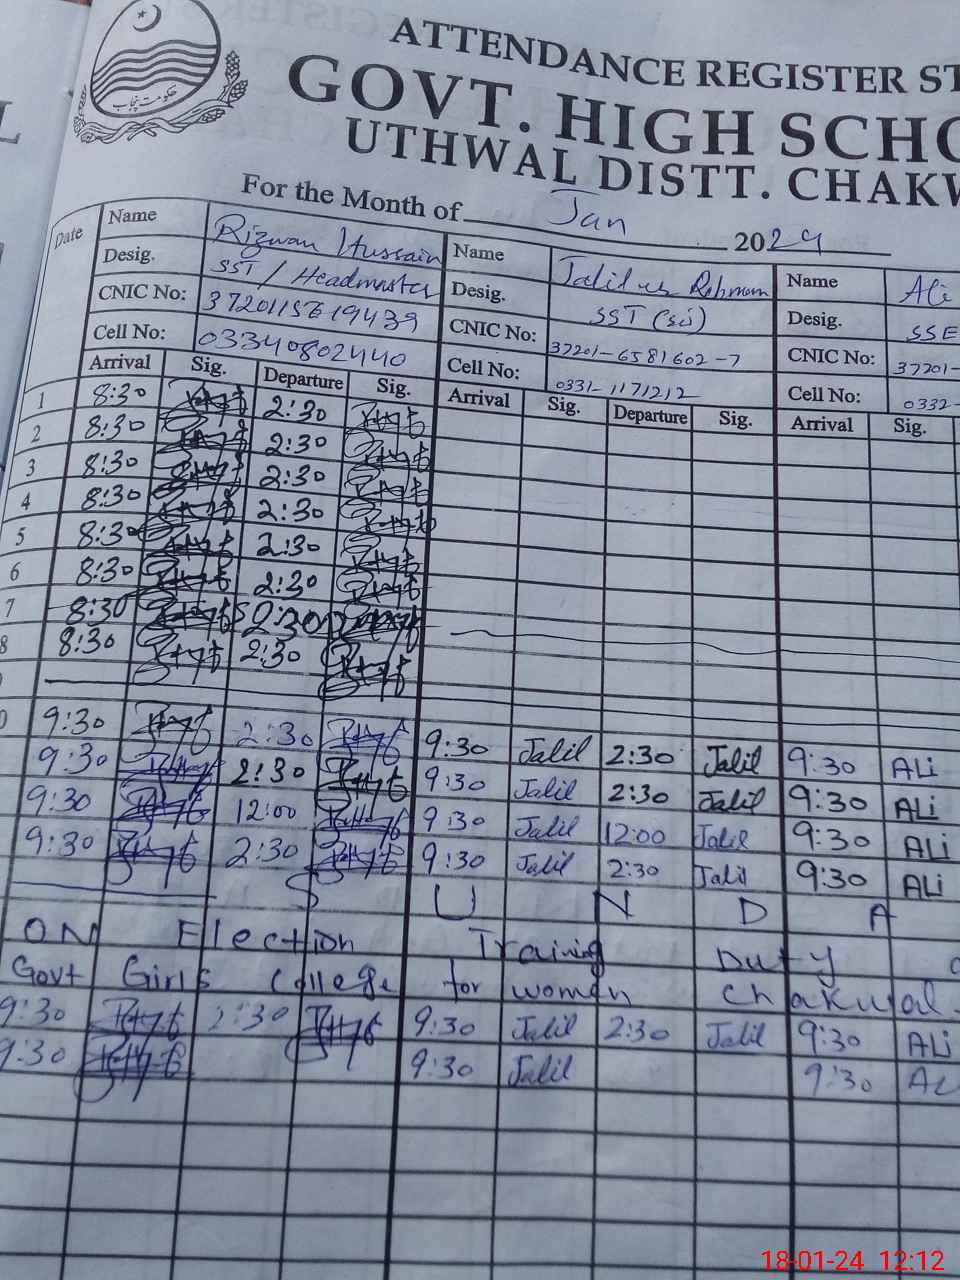 حکومت پنجاب
ATTENDANCE REGISTER ST
GOVT. HIGH SCHO
UTHWAL DISTT. CHAKW
For the Month of Jan 2024
Date
Name Rizwan Hussain Name Jalil ur Rehman Name Ali
Desig. SST / Headmaster Desig. SST (sci) Desig. SSE
CNIC No: 3720115619439 CNIC No: 37201-6581602-7 CNIC No: 37201-
Cell No: 03340802440 Cell No: 0331-1171212 Cell No: 0332-
Arrival Sig. Departure Sig. Arrival Sig. Departure Sig. Arrival Sig.
1 8:30 2:30
2 8:30 2:30
3 8:30 2:30
4 8:30 2:30
5 8:30 2:30
6 8:30 2:30
7 8:30 2:30
8 8:30 2:30
9:30 2:30 9:30 Jalil 2:30 Jalil 9:30 ALi
9:30 2:30 9:30 Jalil 2:30 Jalil 9:30 ALi
9:30 12:00 9:30 Jalil 12:00 Jalil 9:30 ALi
9:30 2:30 9:30 Jalil 2:30 Jalil 9:30 ALi
S U N D A
ON Election Training Duty
Govt Girls College for women Chakwal
9:30 2:30 9:30 Jalil 2:30 Jalil 9:30 ALi
9:30 9:30 Jalil 9:30 AL
18-01-24 12:12